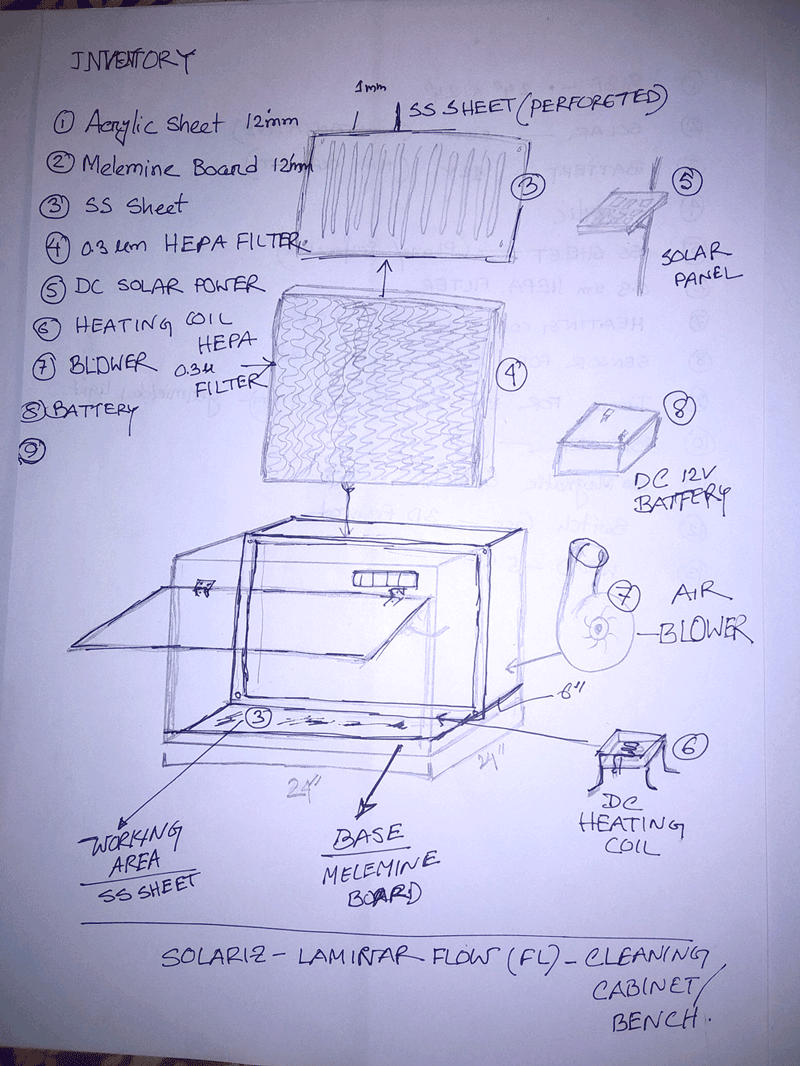 INVENTORY
① Acrylic sheet 12mm
② Melemine Board 12mm
③ SS Sheet
④ 0.3 um HEPA FILTER
⑤ DC SOLAR POWER
⑥ HEATING COIL
⑦ BLOWER
⑧ BATTERY
⑨
1mm
SS SHEET (PERFORETED)
③
⑤
SOLAR
PANEL
HEPA
0.3µ
FILTER
④
⑧
DC 12V
BATTERY
⑦
AIR
BLOWER
6"
③
24"
24"
⑥
DC
HEATING
COIL
WORKING
AREA
SS SHEET
BASE
MELEMINE
BOARD
SOLARIZ - LAMINAR FLOW (FL) - CLEANING
CABINET/
BENCH.